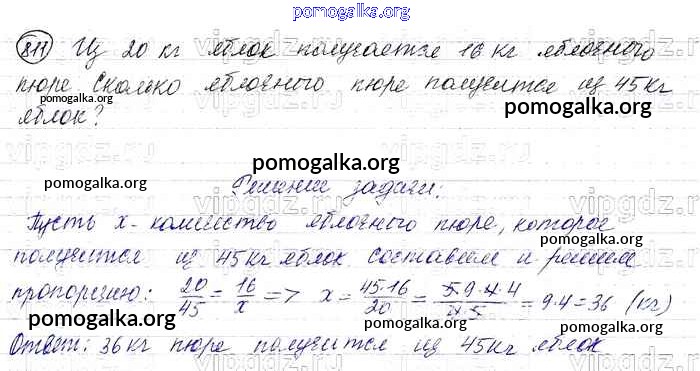 pomogalka.org
811 Из 20 кг яблок получается 16 кг яблочного
пюре. Сколько яблочного пюре получится из 45 кг
яблок?
pomogalka.org
pomogalka.org
vipgdz.ru
pomogalka.org
pomogalka.org
Решение задачи:
pomogalka.org
Пусть x - количество яблочного пюре, которое
pomogalka.org
получится из 45 кг яблок составим и решим
пропорцию: 20/45 = 16/x => x = 45·16/20 = 5·9·4·4/4·5 = 9·4 = 36 (кг)
pomogalka.org
pomogalka.org
Ответ: 36 кг пюре получится из 45 кг яблок
pomogalka.org